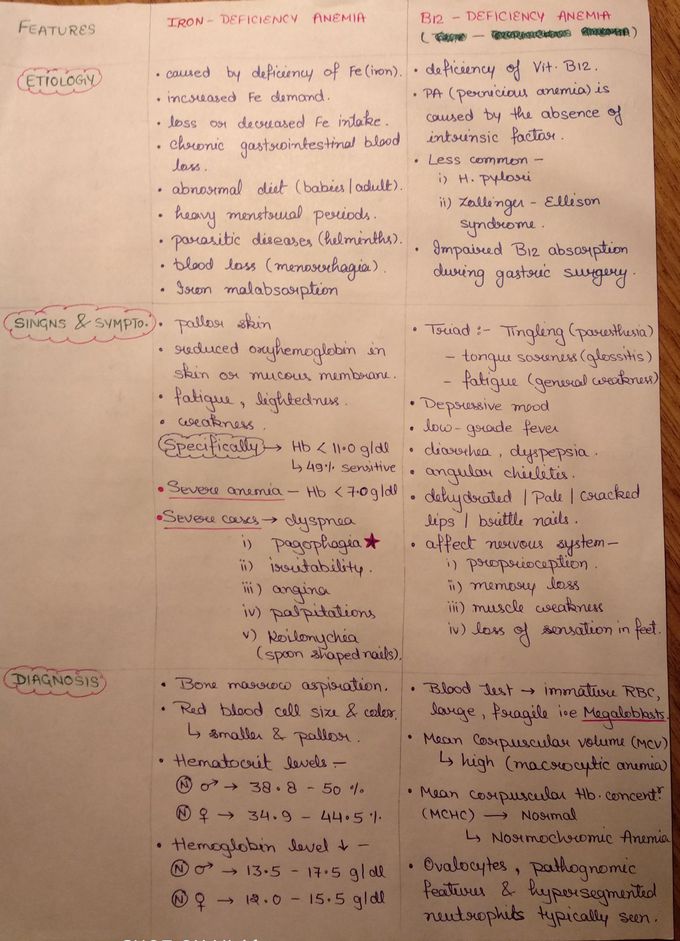 FEATURES
IRON - DEFICIENCY ANEMIA
B12 - DEFICIENCY ANEMIA
ETIOLOGY
• caused by deficiency of Fe (iron).
• increased Fe demand.
• loss or decreased Fe intake.
• chronic gastrointestinal blood
loss.
• abnormal diet (babies/adult).
• heavy menstrual periods.
• parasitic diseases (helminths).
• blood loss (menorrhagia).
• Iron malabsorption
• deficiency of Vit. B12.
• PA (pernicious anemia) is
caused by the absence of
intrinsic factor.
• Less common –
i) H. pylori
ii) Zollinger - Ellison
syndrome.
• Impaired B12 absorption
during gastric surgery.
SINGNS & SYMPTO.
• pallor skin
• reduced oxyhemoglobin in
skin or mucous membrane.
• fatigue, lightedness.
• weakness.
Specifically → Hb < 11.0 g/dl
↳ 49% sensitive
• Severe anemia – Hb < 7.0 g/dl
• Severe cases → dyspnea
i) pagophagia ★
ii) irritability.
iii) angina
iv) palpitations
v) Koilonychia
(spoon shaped nails).
• Triad :- Tingling (paresthesia)
– tongue soreness (glossitis)
– fatigue (general weakness)
• Depressive mood
• low-grade fever
• diarrhea, dyspepsia.
• angular chieletis.
• dehydrated / Pale / cracked
lips / brittle nails.
• affect nervous system –
i) proprioception.
ii) memory loss
iii) muscle weakness
iv) loss of sensation in feet.
DIAGNOSIS
• Bone marrow aspiration.
• Red blood cell size & color.
↳ smaller & pallor.
• Hematocrit levels :-
(N) ♂ → 38.8 - 50 %
(N) ♀ → 34.9 - 44.5 %.
• Hemoglobin level ↓ –
(N) ♂ → 13.5 - 17.5 g/dl
(N) ♀ → 12.0 - 15.5 g/dl
• Blood test → immature RBC,
large, fragile i.e Megaloblasts.
• Mean corpuscular volume (MCV)
↳ high (macrocytic anemia)
• Mean corpuscular Hb. concentʳ
(MCHC) → Normal
↳ Normochromic Anemia
• Ovalocytes, pathognomic
features & hypersegmented
neutrophils typically seen.